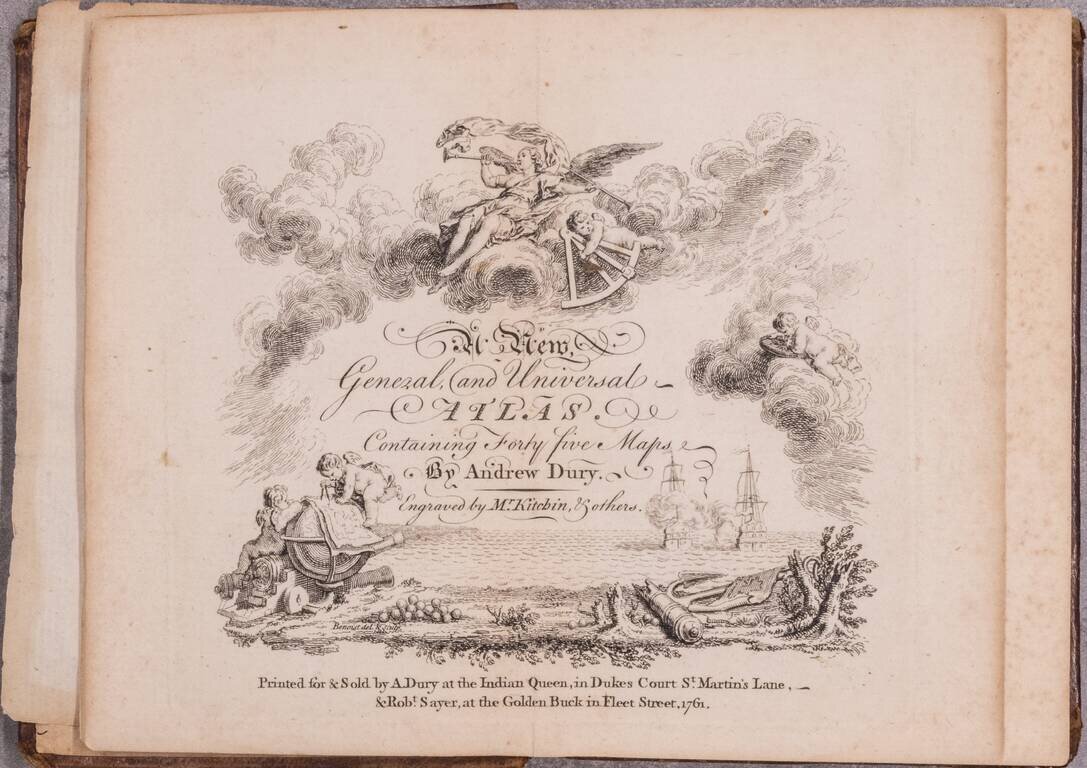 A New,
General, and Universal
ATLAS.
Containing Forty five Maps
By Andrew Dury.
Engraved by Mr. Kitchin, & others.
Benoist del. & sculp.
Printed for & Sold by A. Dury at the Indian Queen, in Dukes Court St. Martin's Lane,
& Robt. Sayer, at the Golden Buck in Fleet Street, 1761.